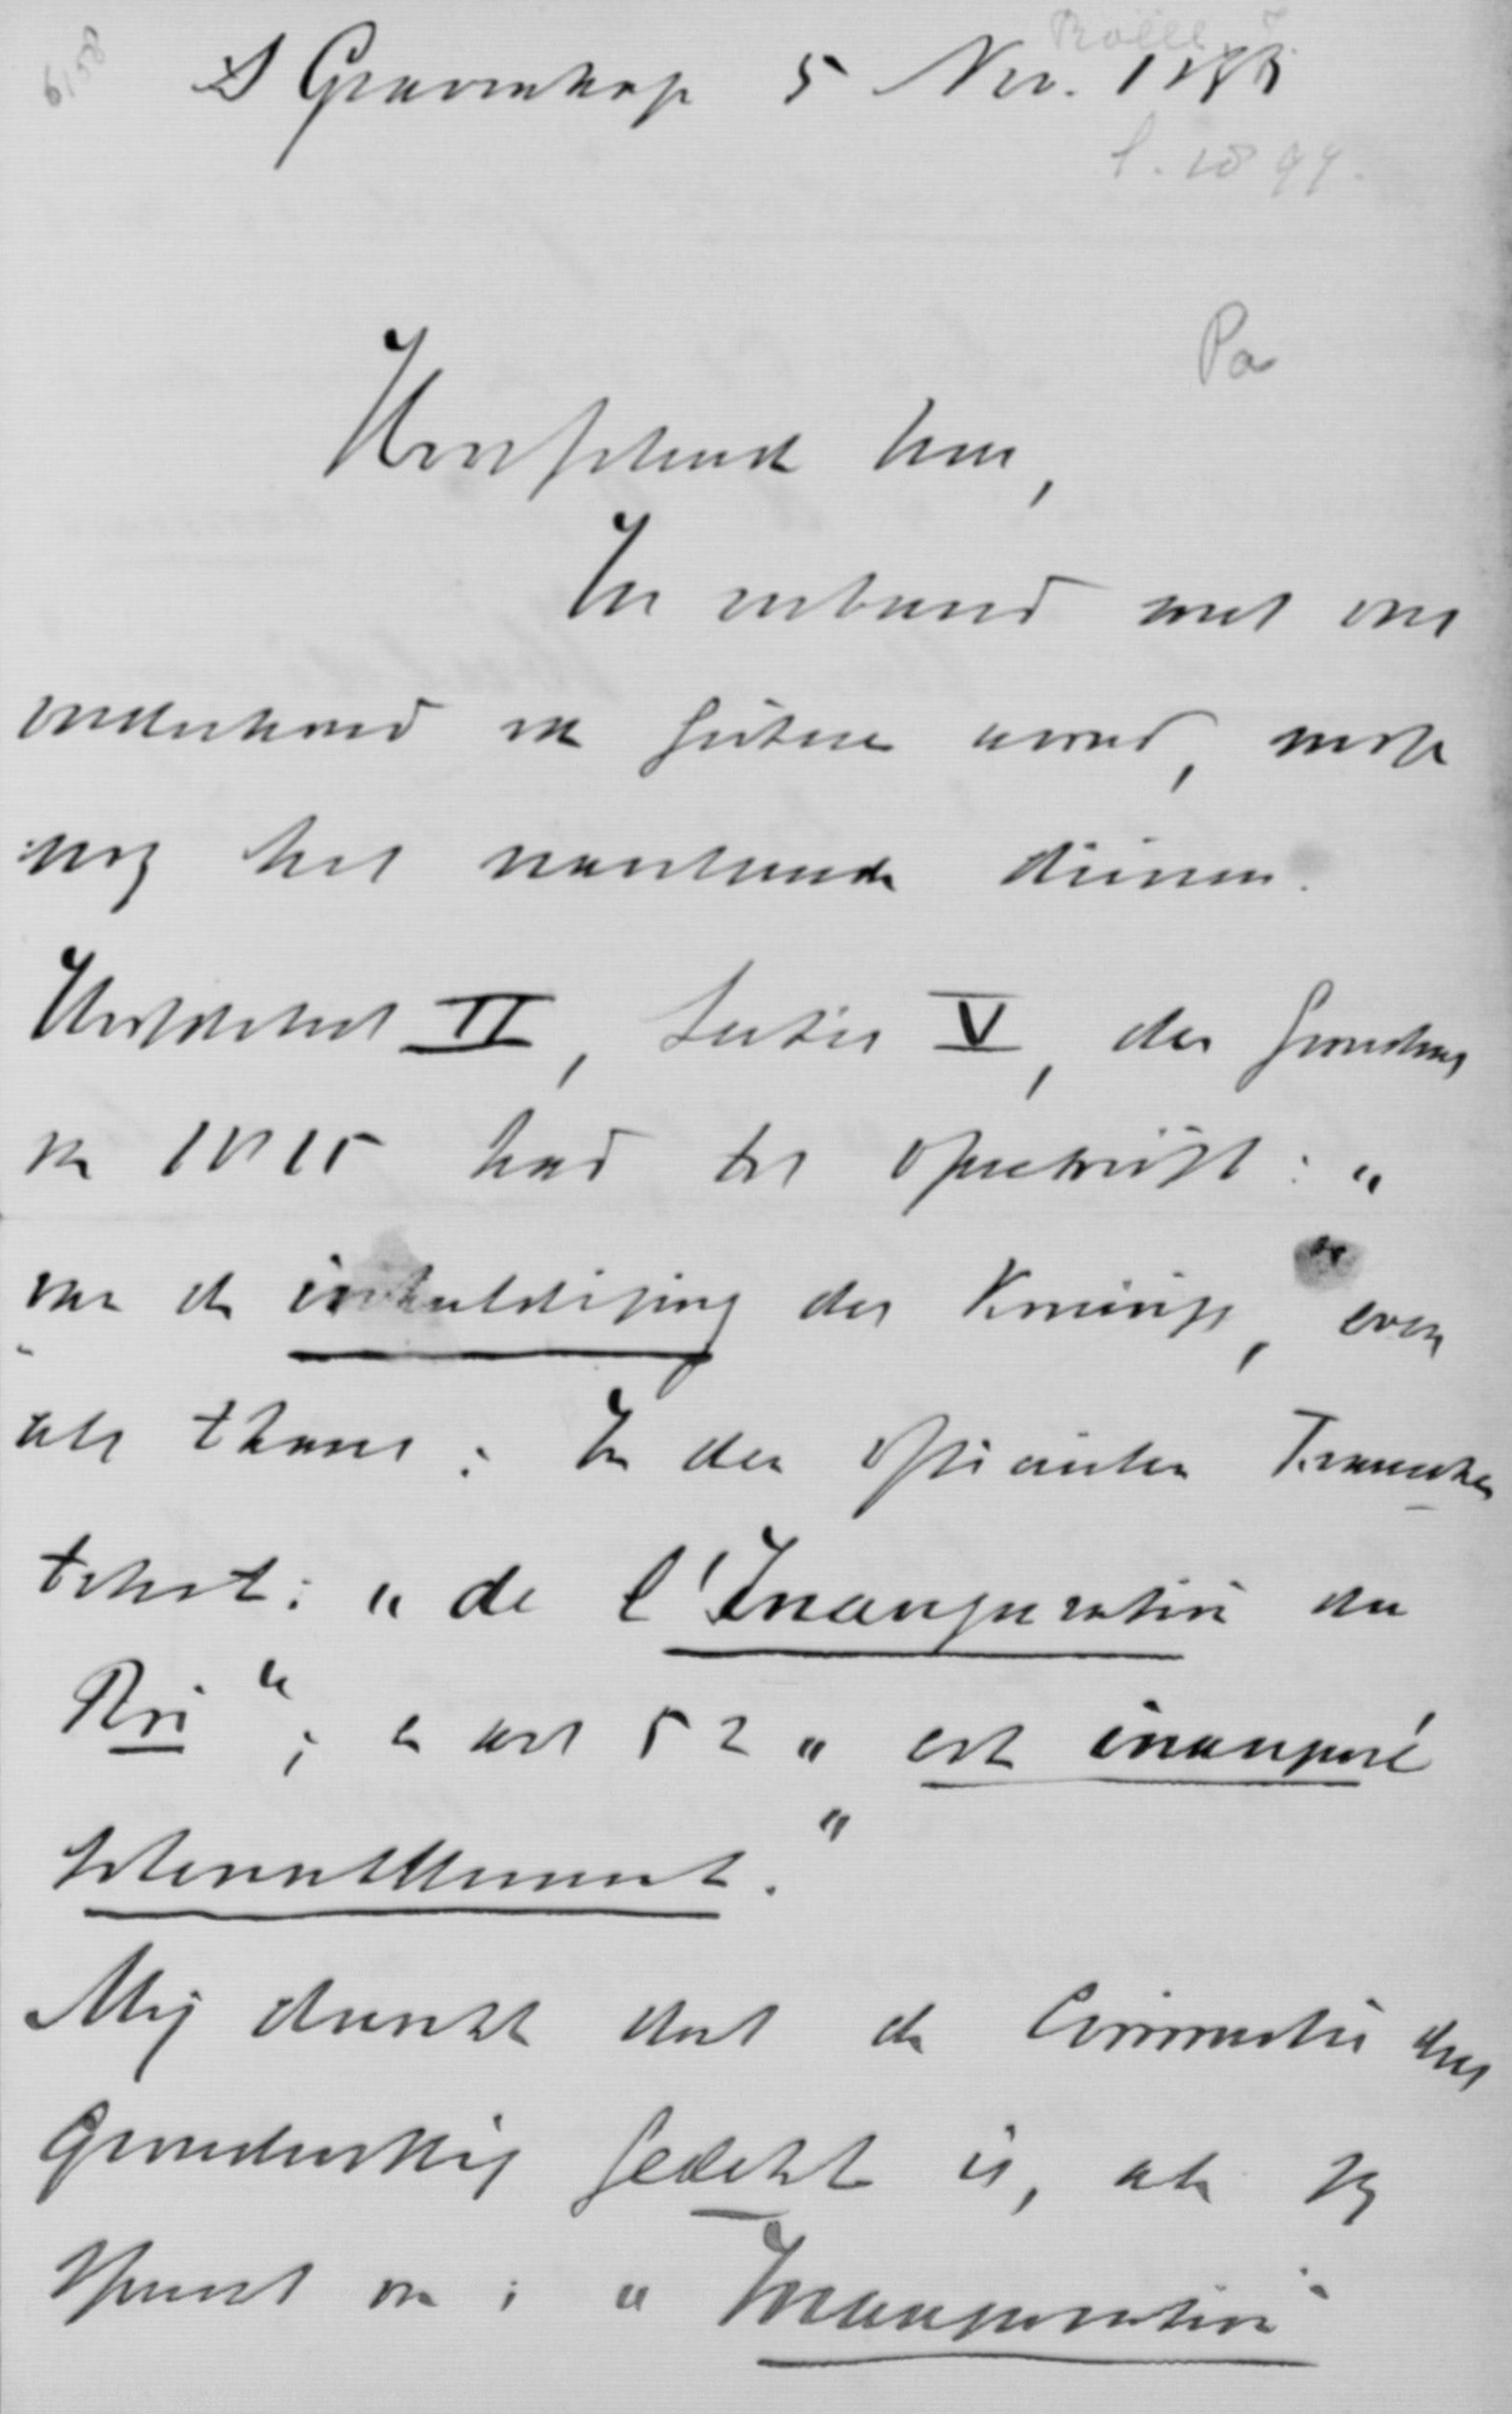 'S Gravenhage 5 Nov. 18
Pa
Hooggeachte heer,
In verband met ons
onderhoud van gisteren avond, moge
nog het navolgende dienen.
Hoofdstuk II, Sectie V, der Grondwet
van 1815 had tot opschrift: "
van de inhuldiging des Konings, even
als thans: In den officieelen Franschen
tekst: "de l'Inauguration du
Roi"; en art 52 " est inauguré
solennellement."
Mij dunkt dat de Commissie dus
Grondwettig gedekt is, als zij
spreekt van: "Inauguration"